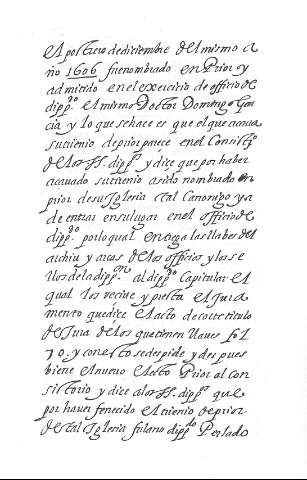 el postrero de diciembre del mismo a
ño 1606 fue nombrado en Prior y
admitido en el exercicio de officio de
dipp.do el mismo Doctor Domingo Gar
cia, y lo que se hace es que el que acaua
su trienio de prior parece en el Consist.o
de los SS. dipp.s y dice que por hauer
acauado su trienio a sido nombrado en
prior de su Iglesia tal Canonigo ya
de entrar en su lugar en el officio de
dipp.do por lo qual entrega las llabes del
archiu y arcas de los officios y los se
llos de la dipp.on al dipp.do Capitular el
qual los reciue y presta el Jura
mento que dice el acto de corte titulo
de Jura de los que tienen llaues fol
70. y con esto se despide y despues
biene el nueuo electo Prior al Con
sistorio y dice a los SS. dipp.s que
por hauer fenecido el trienio de prior
de tal Iglesia fulano dipp.do Perlado